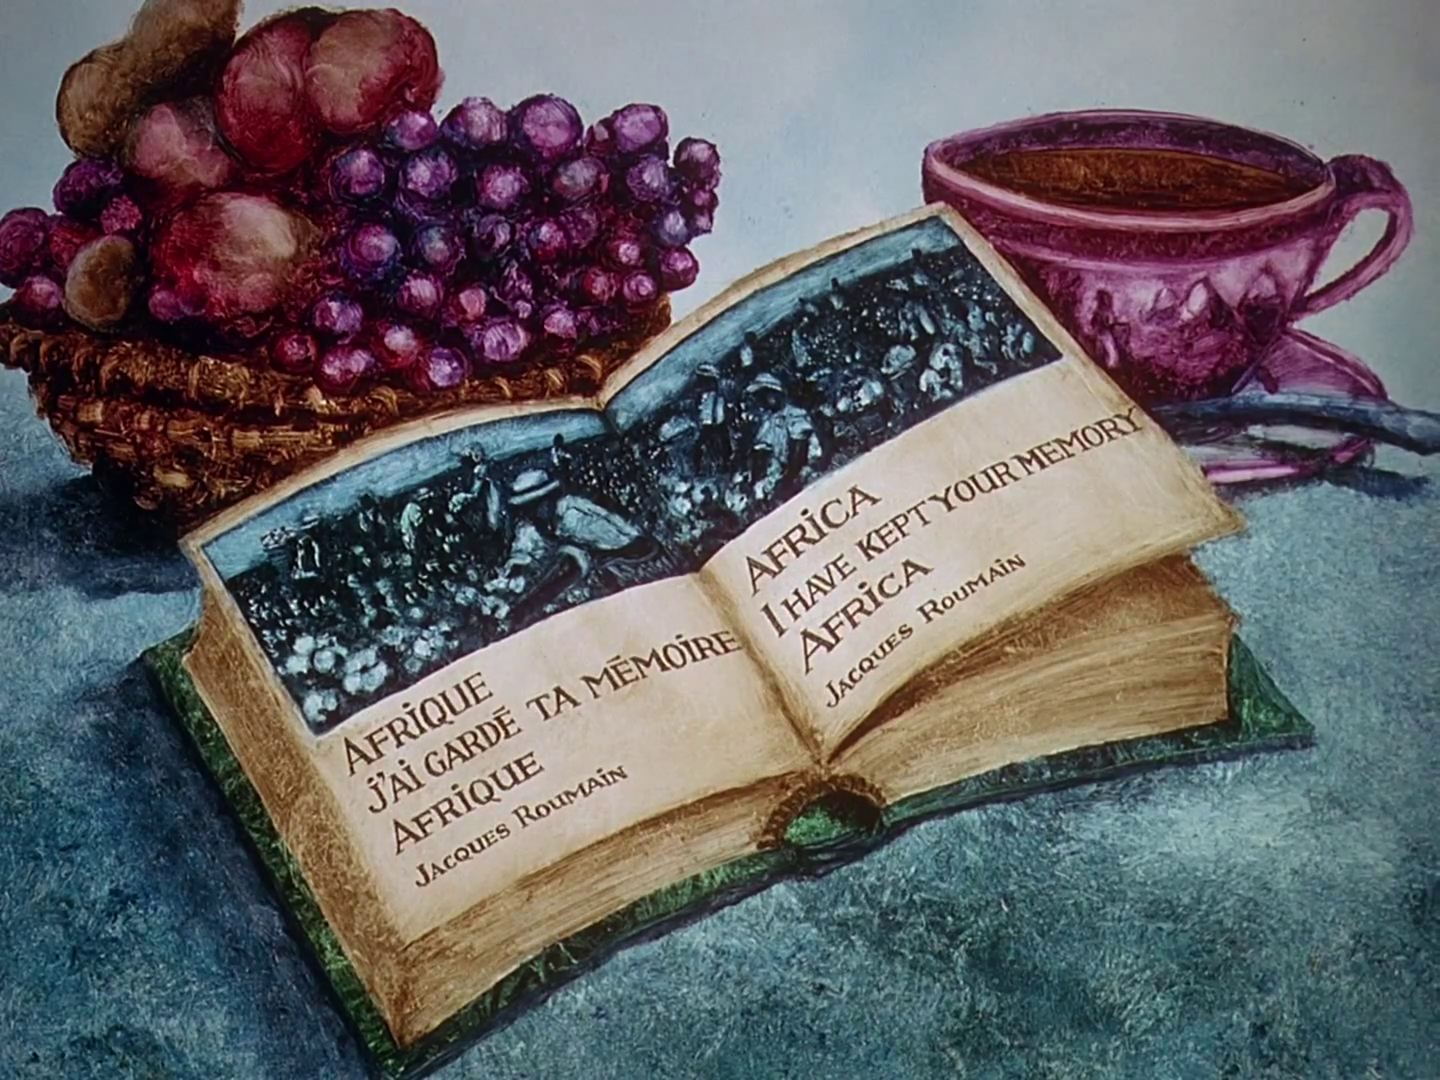 AFRIQUE
J'AI GARDÉ TA MÉMOIRE
AFRIQUE
JACQUES ROUMAIN
AFRICA
I HAVE KEPT YOUR MEMORY
AFRICA
JACQUES ROUMAIN